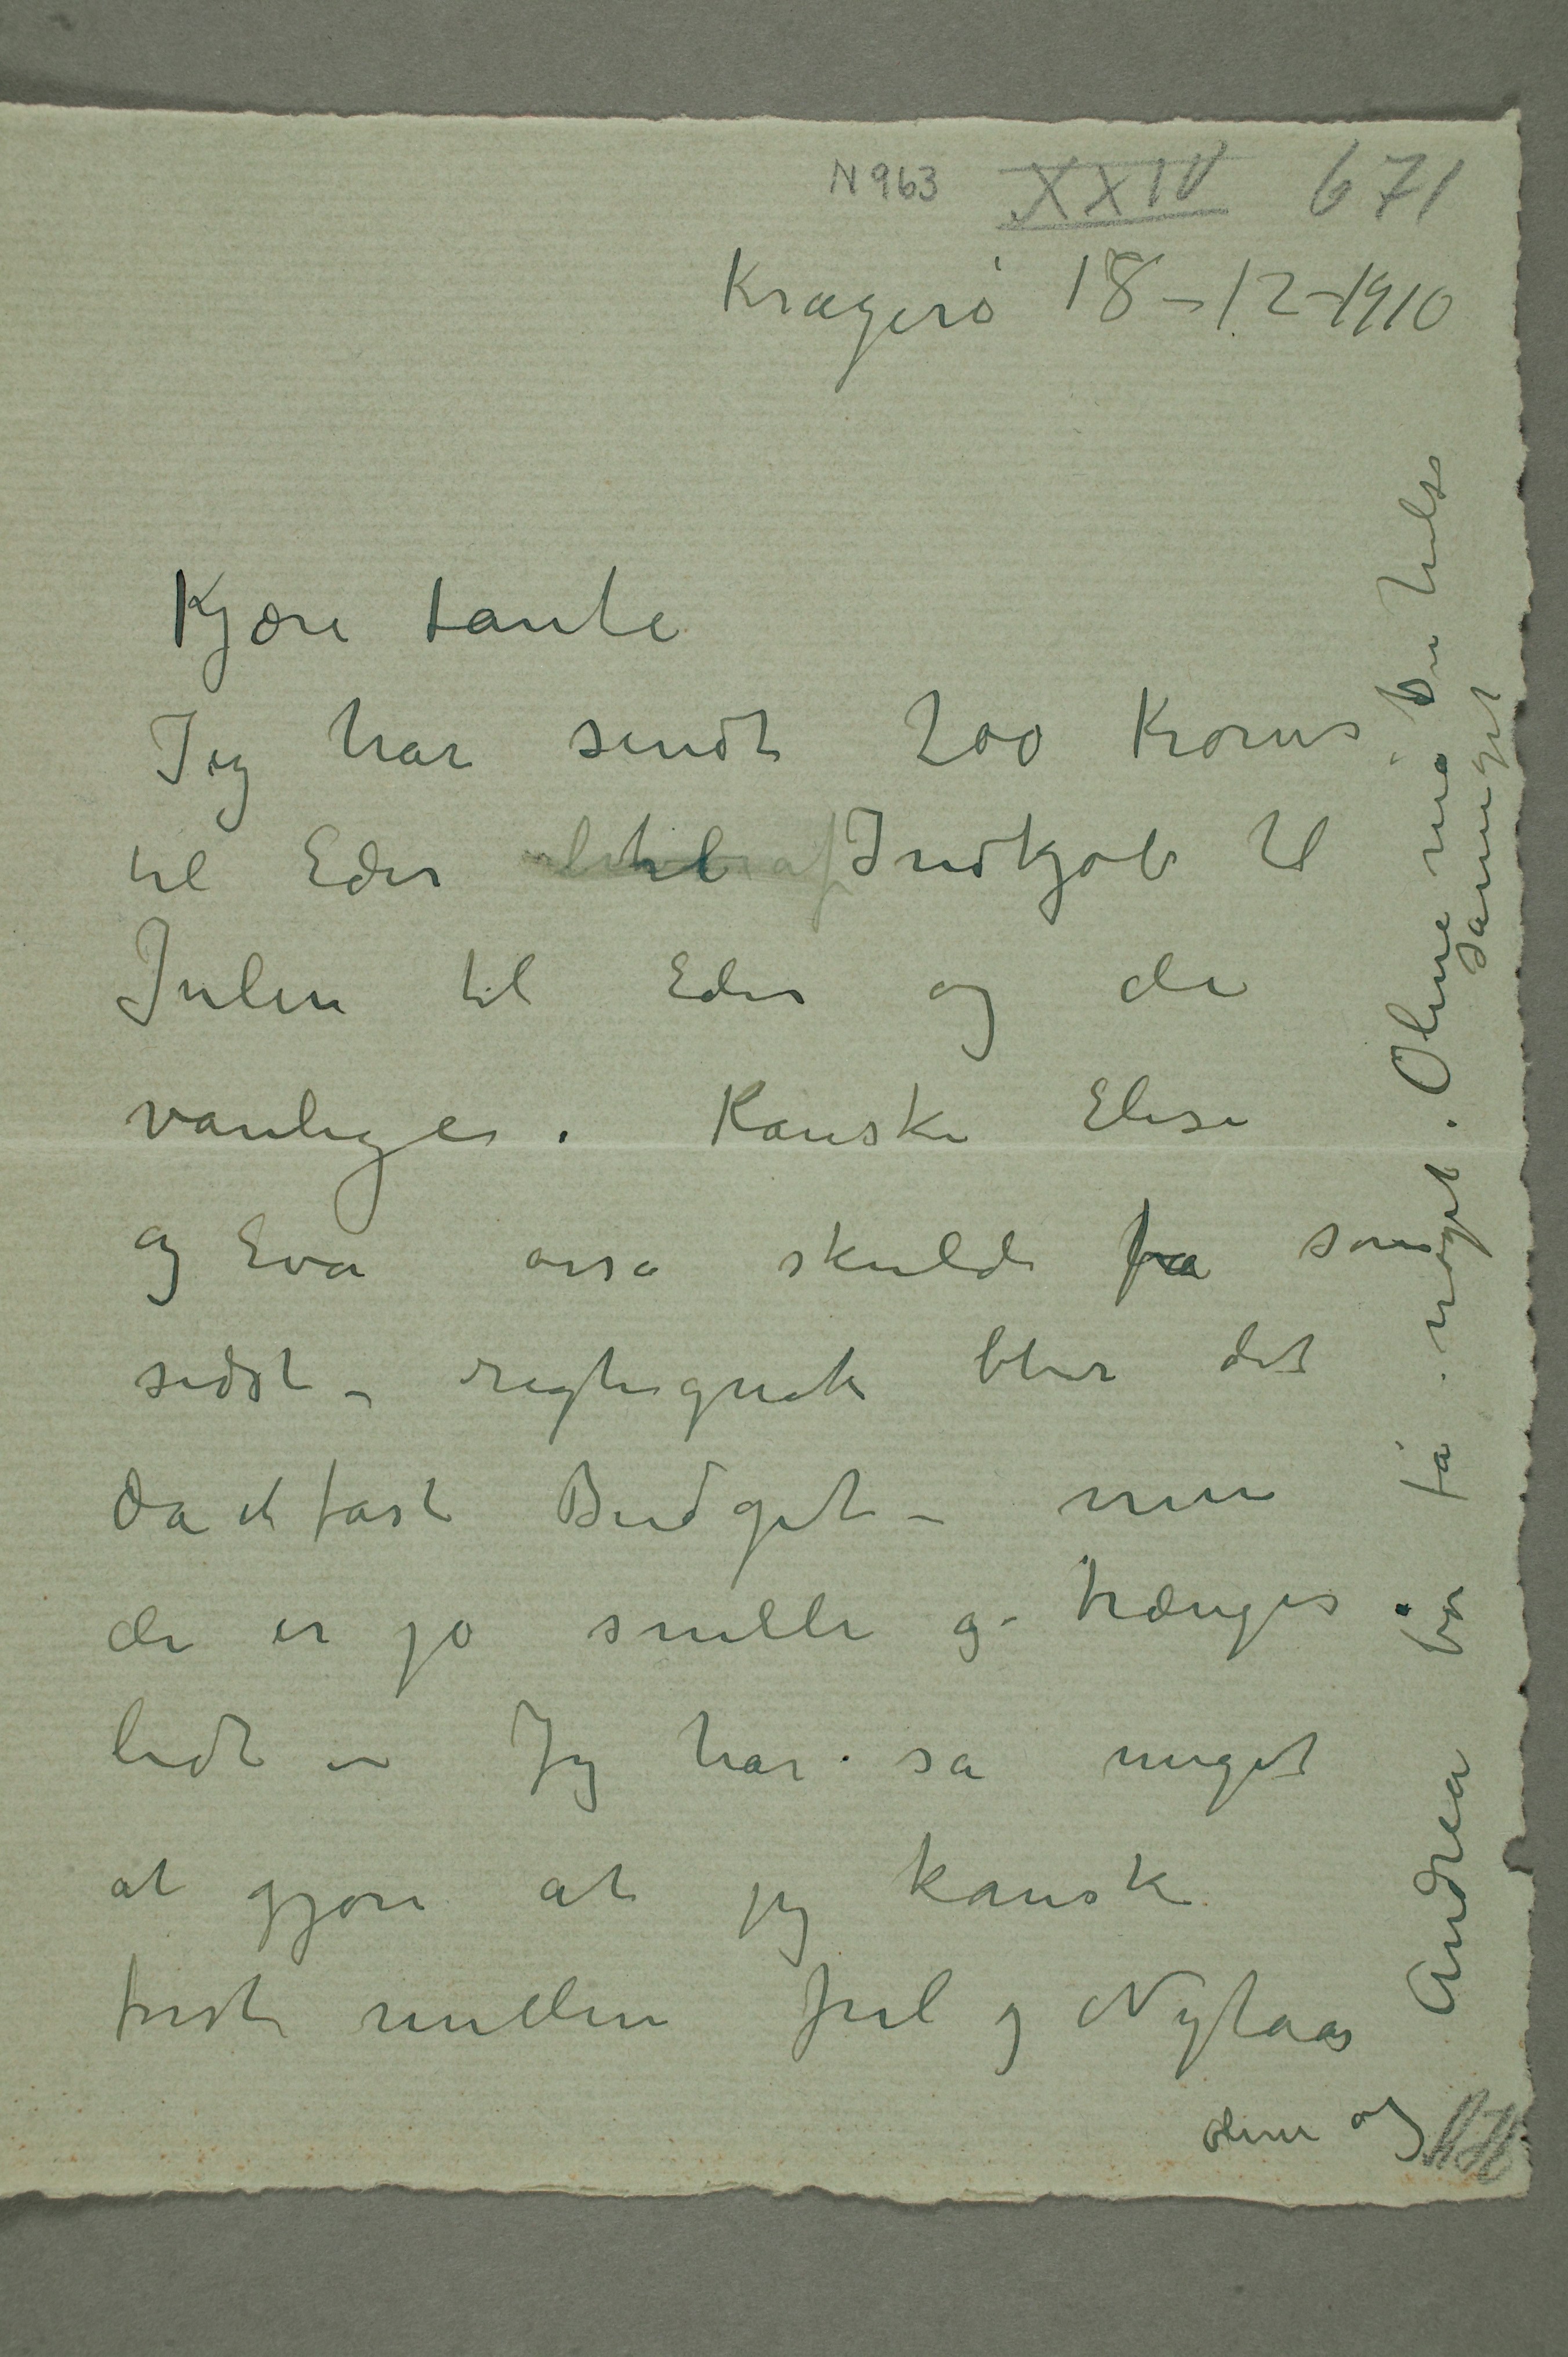 N 963 XXIV 671
Kragerø 18–12–1910
Kjære tante
Jeg har sendt 200 Kroner
til Eder til Indkjøb til
Julen til Eder og de
vanlige. Kanske Elise
og Eva osså skulde fa som
sidst – rigtignok blir det
da et fast Budget – men
de er jo snille og trænger
lidt – Jeg har så meget
at gjøre at jeg kanske
først mellem Jul og Nytaar
Oline og
Andrea bør få noget. Oline må De hilse
så meget